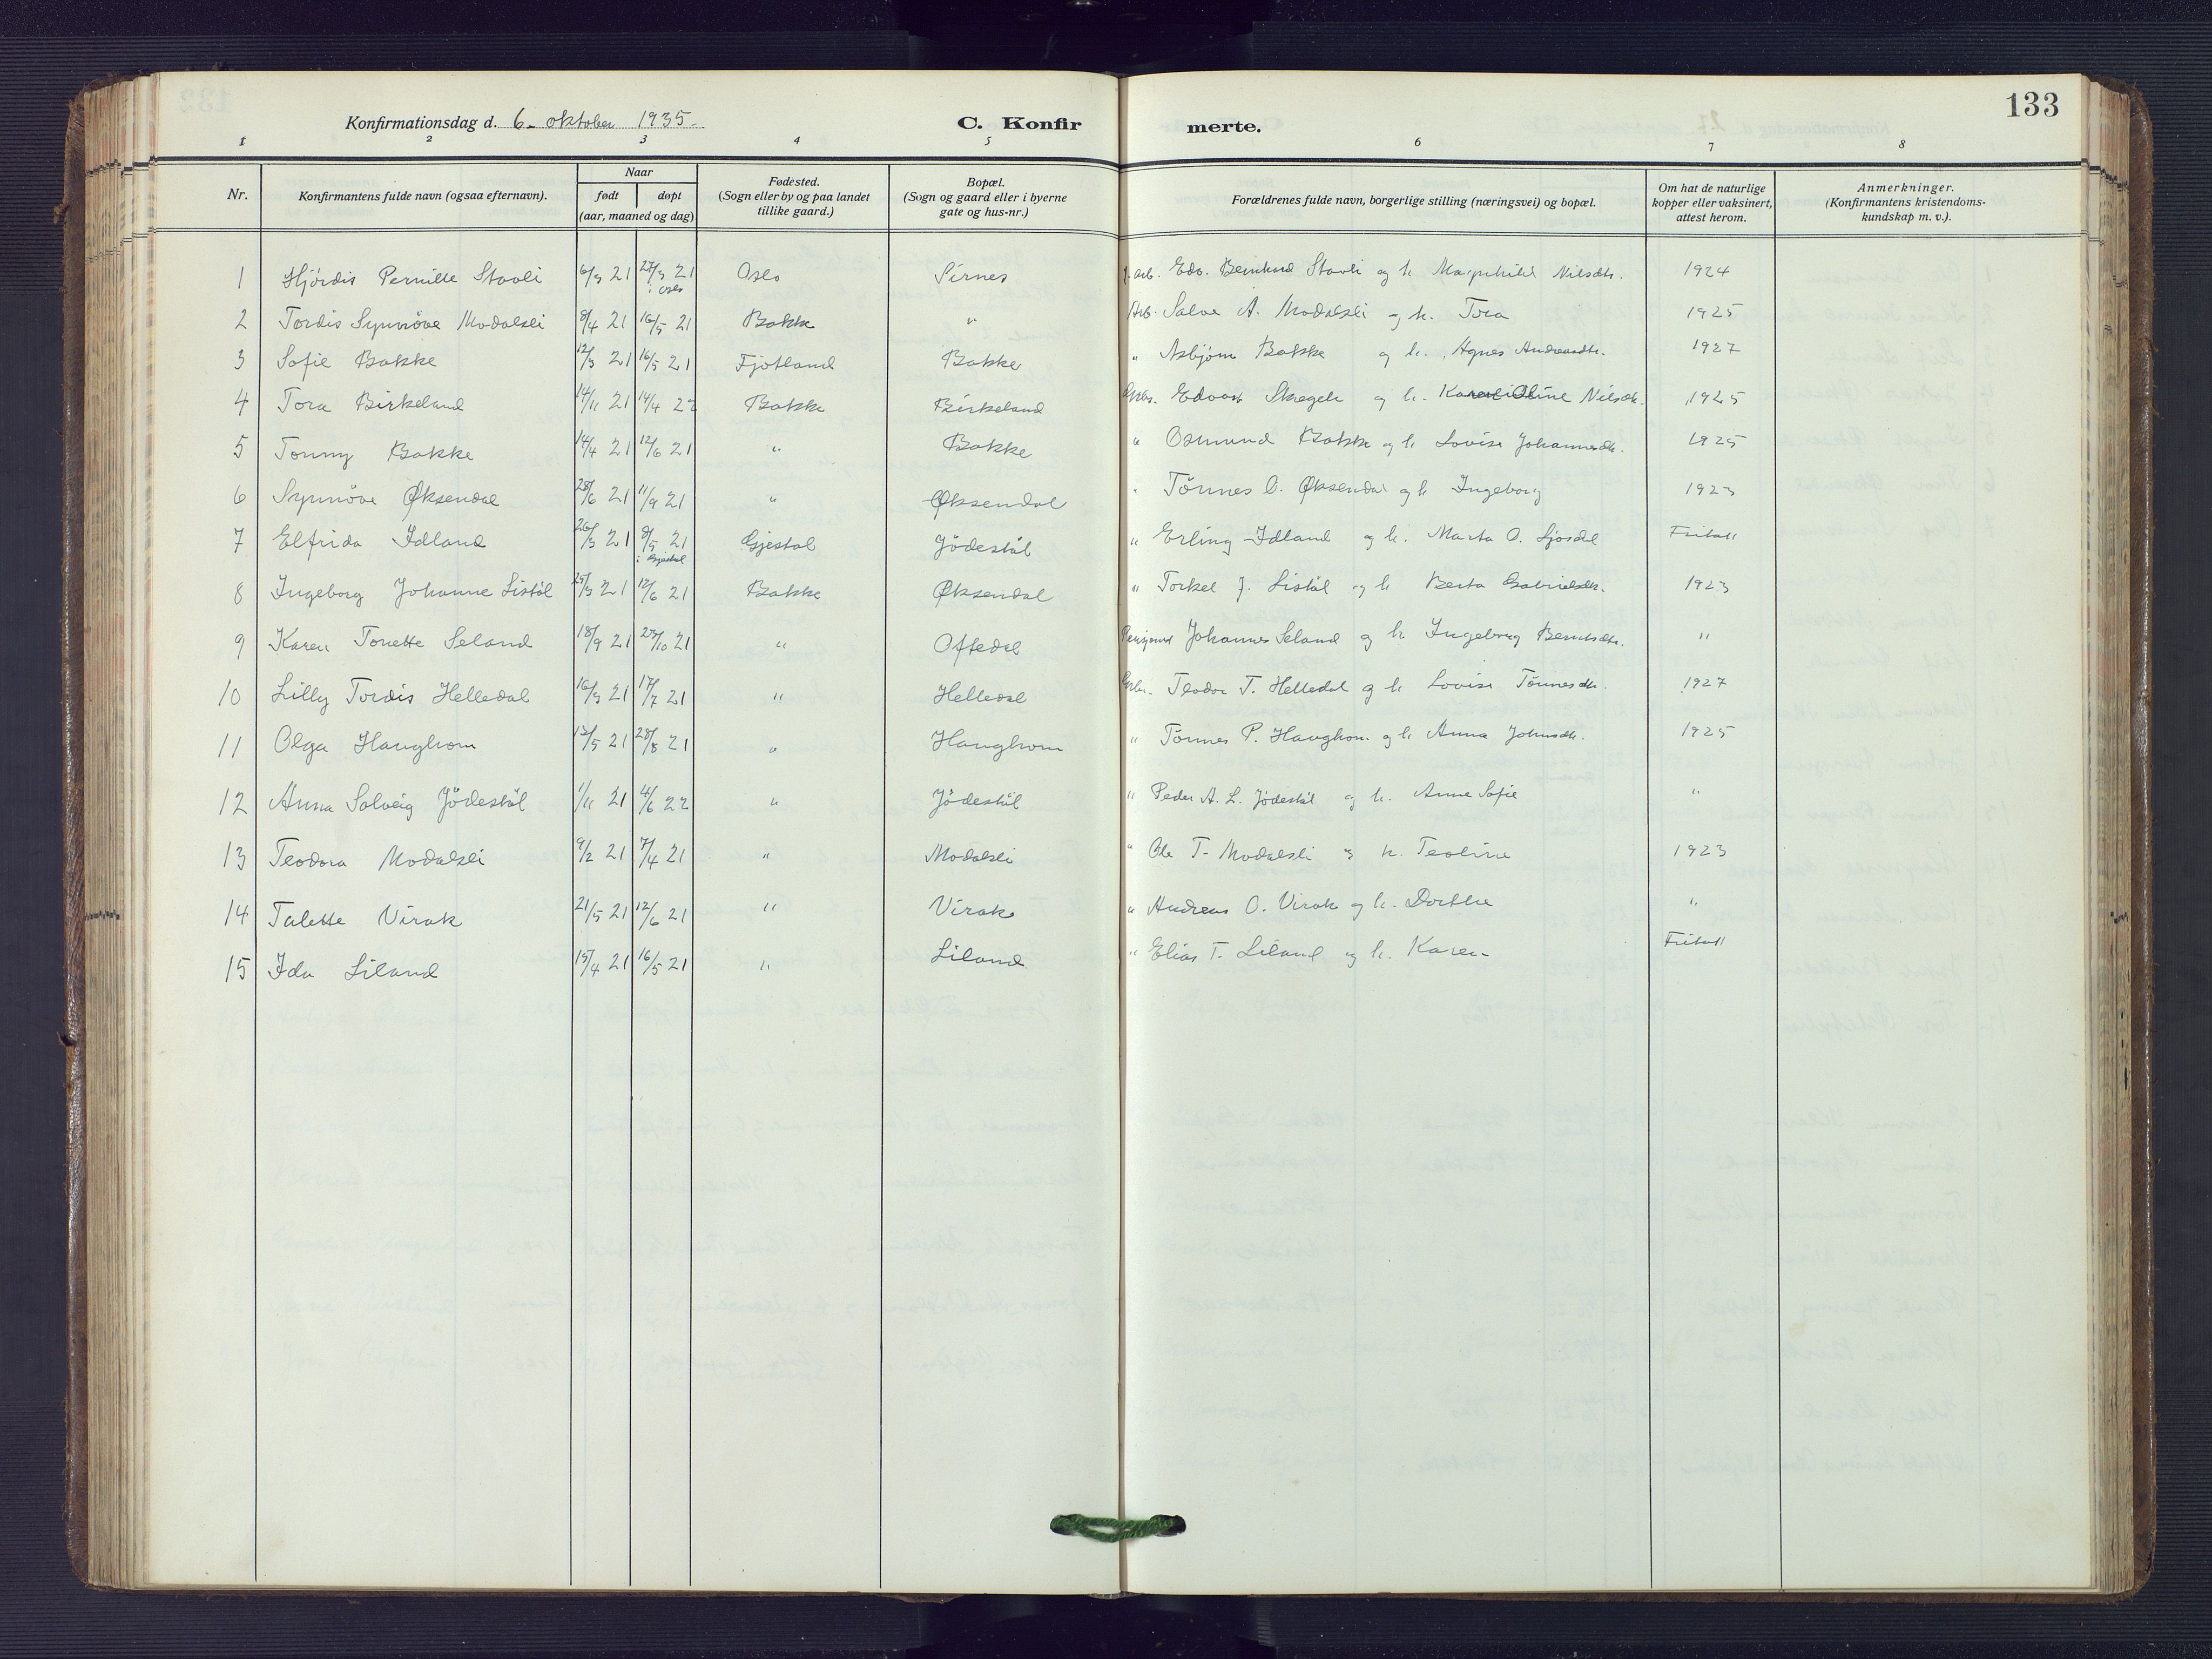 133
Konfirmationsdag d. 6. oktober 1935.
C. Konfirmerte.
1 2 3 4 5 6 7 8
Nr. Konfirmantens fulde navn (ogsaa efternavn). Naar født døpt (aar, maaned og dag) Fødested. (Sogn eller by og paa landet tillike gaard.) Bopæl. (Sogn og gaard eller i byerne gate og hus-nr.) Forældrenes fulde navn, borgerlige stilling (næringsvei) og bopæl. Om hat de naturlige kopper eller vaksinert, attest herom. Anmerkninger. (Konfirmantens kristendoms-kundskap m. v.).
1 Hjördis Pernille Stavli 6/3 21 27/3 21 i Oslo Oslo Sirnes Edv. Stavli og h. Magnhild Nilsdtr. 1924
2 Tordis Synnöve Modalsli 8/4 21 16/5 21 Bakke " Arb. Salve A. Modalsli og h. Tora 1925
3 Sofie Bakke 12/3 21 16/5 21 Fjotland Bakke " Asbjörn Bakke og h. Agnes Andreasdtr. 1927
4 Tora Birkeland 14/11 21 14/4 22 Bakke Birkeland Gbr. Edvart Skregeli og h. Nilsdtr. 1925
5 Tonny Bakke 14/4 21 12/6 21 " Bakke " Osmund Bakke og h. Lovise Johannesdtr. 1925
6 Synnöve Øksendal 28/6 21 11/9 21 " Øksendal " Tönnes O. Øksendal og h. Ingeborg 1923
7 Elfrida Idland 26/3 21 8/5 21 i Gjestal Gjestal Jödestöl " Erling Idland og h. Marta O. Sjösdal Fritatt
8 Ingeborg Johanne Listöl 25/3 21 12/6 21 Bakke Øksendal " Torkel J. Listöl og h. Berta Gabrielsdtr. 1923
9 Karen Tonette Seland 18/9 21 23/10 21 " Oftedal Pensjonist Johannes Seland og h. Ingeborg Berntsdtr. "
10 Lilly Tordis Helledal 16/3 21 17/7 21 " Helledal Gbr. Teodor T. Helledal og h. Lovise Tönnesdtr. 1927
11 Olga Haughom 13/5 21 28/8 21 " Haughom " Tönnes P. Haughom og h. Anna Johnsdtr. 1925
12 Anna Solveig Jödestöl 1/11 21 4/6 22 " Jödestöl " Peder A. L. Jödestöl og h. Anne Sofie "
13 Teodora Modalsli 9/2 21 7/4 21 " Modalsli " Ole T. Modalsli og h. Teoline 1923
14 Talette Virak 21/5 21 12/6 21 " Virak " Andreas O. Virak og h. Dorthe "
15 Ida Liland 15/4 21 16/5 21 " Liland " Elias T. Liland og h. Karen Fritatt